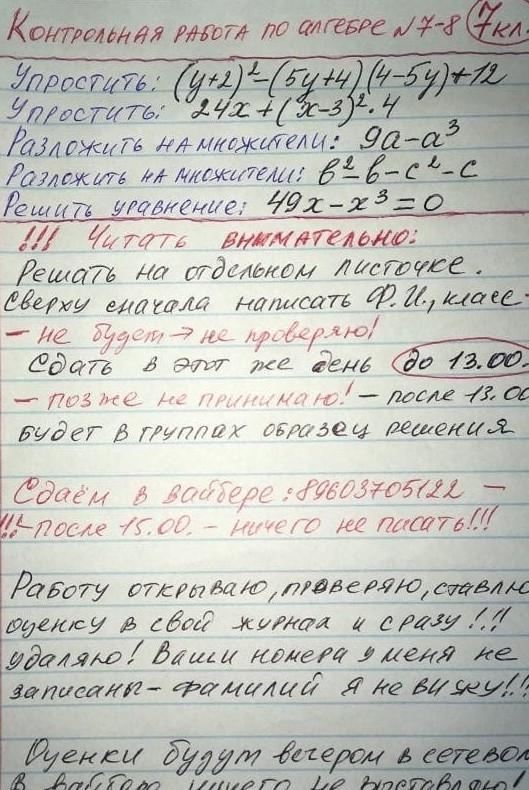 Контрольная работа по алгебре №7-8 7кл.
Упростить: (y+2)²-(5y+4)(4-5y)+12
Упростить: 24x+(x-3)²·4
Разложить на множители: 9a-a³
Разложить на множители: b²-b-c²-c
Решить уравнение: 49x-x³=0
!!! Читать внимательно:
Решать на отдельном листочке.
Сверху сначала написать Ф.И., класс-
- не будет → не проверяю!
Сдать в этот же день до 13.00.
- позже не принимаю! - после 13.00
будет в группах образец решения
Сдаём в вайбере: 89603705122 -
!!!-после 15.00. - ничего не писать!!!
Работу открываю, проверяю, ставлю
оценку в свой журнал и сразу!!!
удаляю! Ваши номера у меня не
записаны - фамилий я не вижу!!!
Оценки будут вечером в сетевом
в вайбере ничего не выставляю!